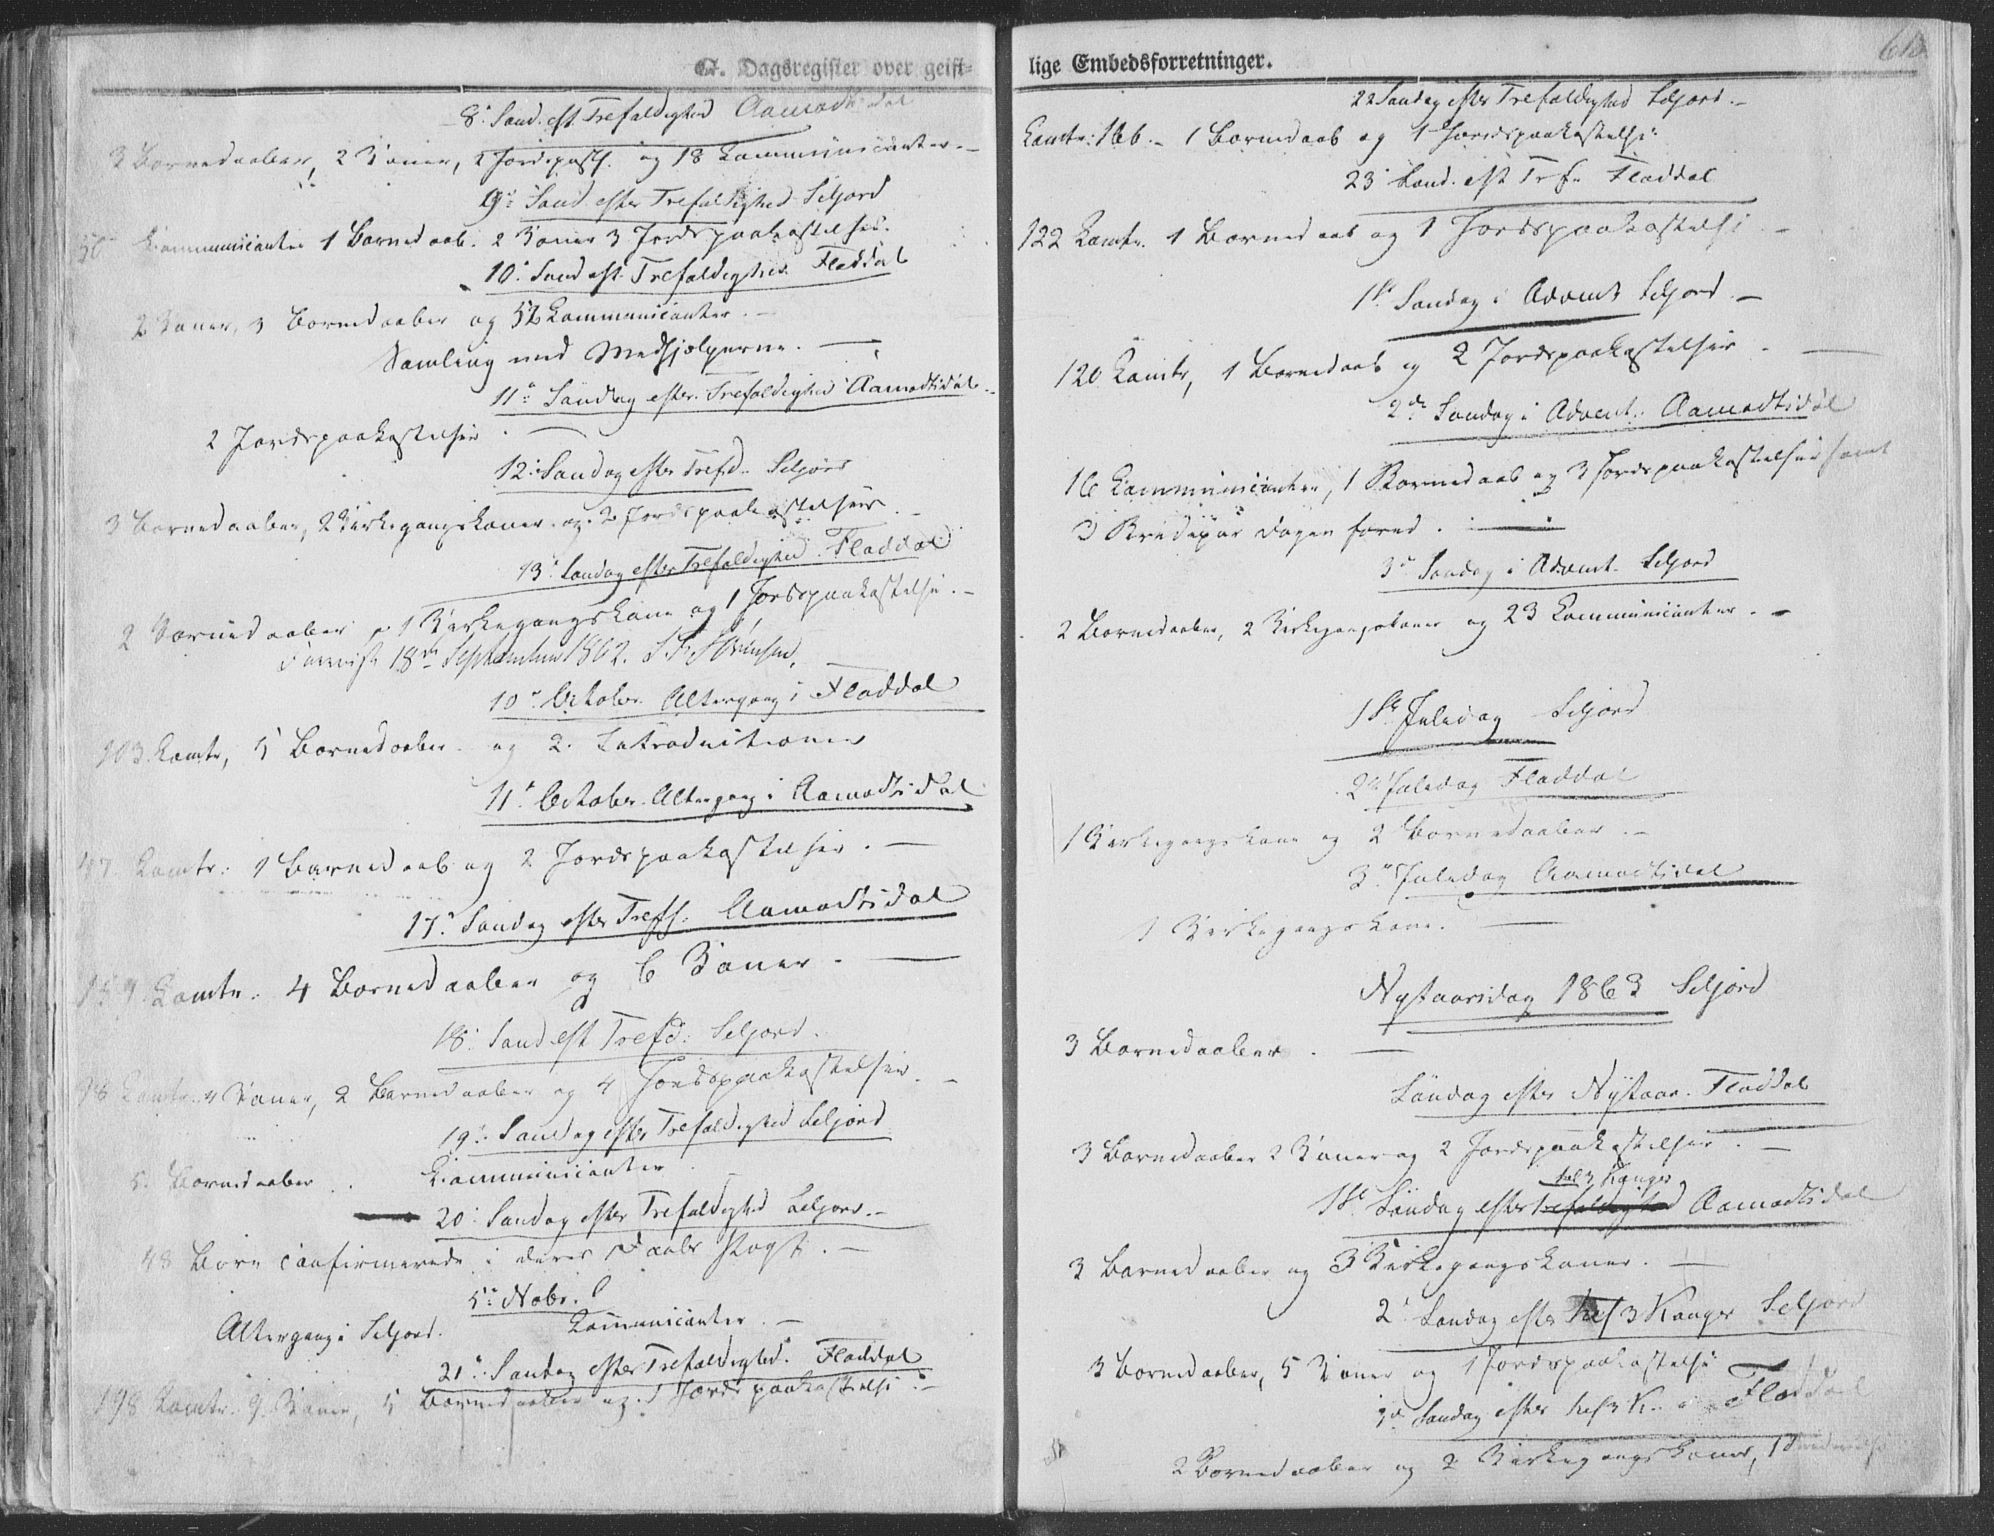 G. Dagsregister over geist-
8. Sønd. eft. Trefoldighed Aamodtsdal
3 Barnedaaber, 2 Koner, 2 Jordspaak. og 18 Kommunicanter. -
9. Sønd. efter Trefoldighed Seljord
Kommunicanter 1 Barnedaab. 2 Koner 3 Jordspaakastelser.
10. Sønd. eft. Trefoldighed. Fladdal
2 Koner, 3 Barnedaaber og 52 Kommunicanter. -
Samling med Medhjelperne. -
11. Søndag efter Trefoldighed Aamodtsdal.
2 Jordspaakastelser
12. Søndag efter Trefd. Seljord
3 Barnedaaber, 2 Kirkegangskoner og 2 Jordspaakastelser. -
13. Søndag efter Trefoldighed. Fladdal
2 Barnedaaber, 1 Kirkegangskone og 1 Jordspaakastelse. -
18de September 1862.
10. October. Altergang i Fladdal
103. Komtr, 5 Barnedaaber og 2. Introductioner
11. October Altergang i Aamodtsdal
47 Komtr. 1 Barnedaab og 2 Jordspaakastelser. -
17. Søndag efter Tref. Aamodtsdal
Komtr. 4 Barnedaaber og 6 Koner. -
18. Sønd. eft. Trefd. Seljord.
Komtr. 4 Koner, 2 Barnedaaber og 4 Jordspaakastelser. -
19. Søndag efter Trefoldighed Seljord
5. Barnedaaber. Kommunicanter
20. Søndag efter Trefoldighed Seljord. -
48 Børn confirmerede i deres Daabs Pagt. -
5. Nobr.
Altergang i Seljord. Kommunicanter. -
21. Søndag efter Trefoldighed. Fladdal
198 Komtr. 9. Koner, 5 Barnedaaber og 1 Jordspaakastelse. -
lige Embedsforretninger.
22 Søndag efter Trefoldighed Seljord. -
Komtr. 166. - 1 Barnedaab og 1 Jordspaakastelse
23. Sønd. eft. Tref. Fladdal
122 Komtr. 1 Barnedaab og 1 Jordspaakastelse -
1ste Søndag i Advent Seljord. -
120 Komtr, 1 Barnedaab og 2 Jordspaakastelser. -
2den Søndag i Advent. Aamodtsdal
16 Kommunicanter, 1 Barnedaab og 3 Jordspaakastelser samt
3 Brudepar Dagen forud. -
3. Søndag i Advent. Seljord
2 Barnedaaber, 2 Kirkegangskoner og 23 Kommunicanter. -
1ste Juledag Seljord
2den Juledag Fladdal
1 Kirkegangskone og 2 Barnedaaber. -
3die Juledag Aamodtsdal
1 Kirkegangskone. -
Nytaarsdag 1863 Seljord
3 Barnedaaber. -
Søndag efter Nytaar. Fladdal
3 Barnedaaber 2 Koner og 2 Jordspaakastelser. -
hel 3 Konger
1ste Søndag efter Trefoldighed Aamodtsdal
3 Barnedaaber og 3 Kirkegangskoner. -
2. Søndag efter hel 3 Konger Seljord
3 Barnedaaber, 5 Koner og 1 Jordspaakastelse
3die Søndag efter hel 3 K. Fladdal
2 Barnedaaber og 2 Kirkegangskoner, 1